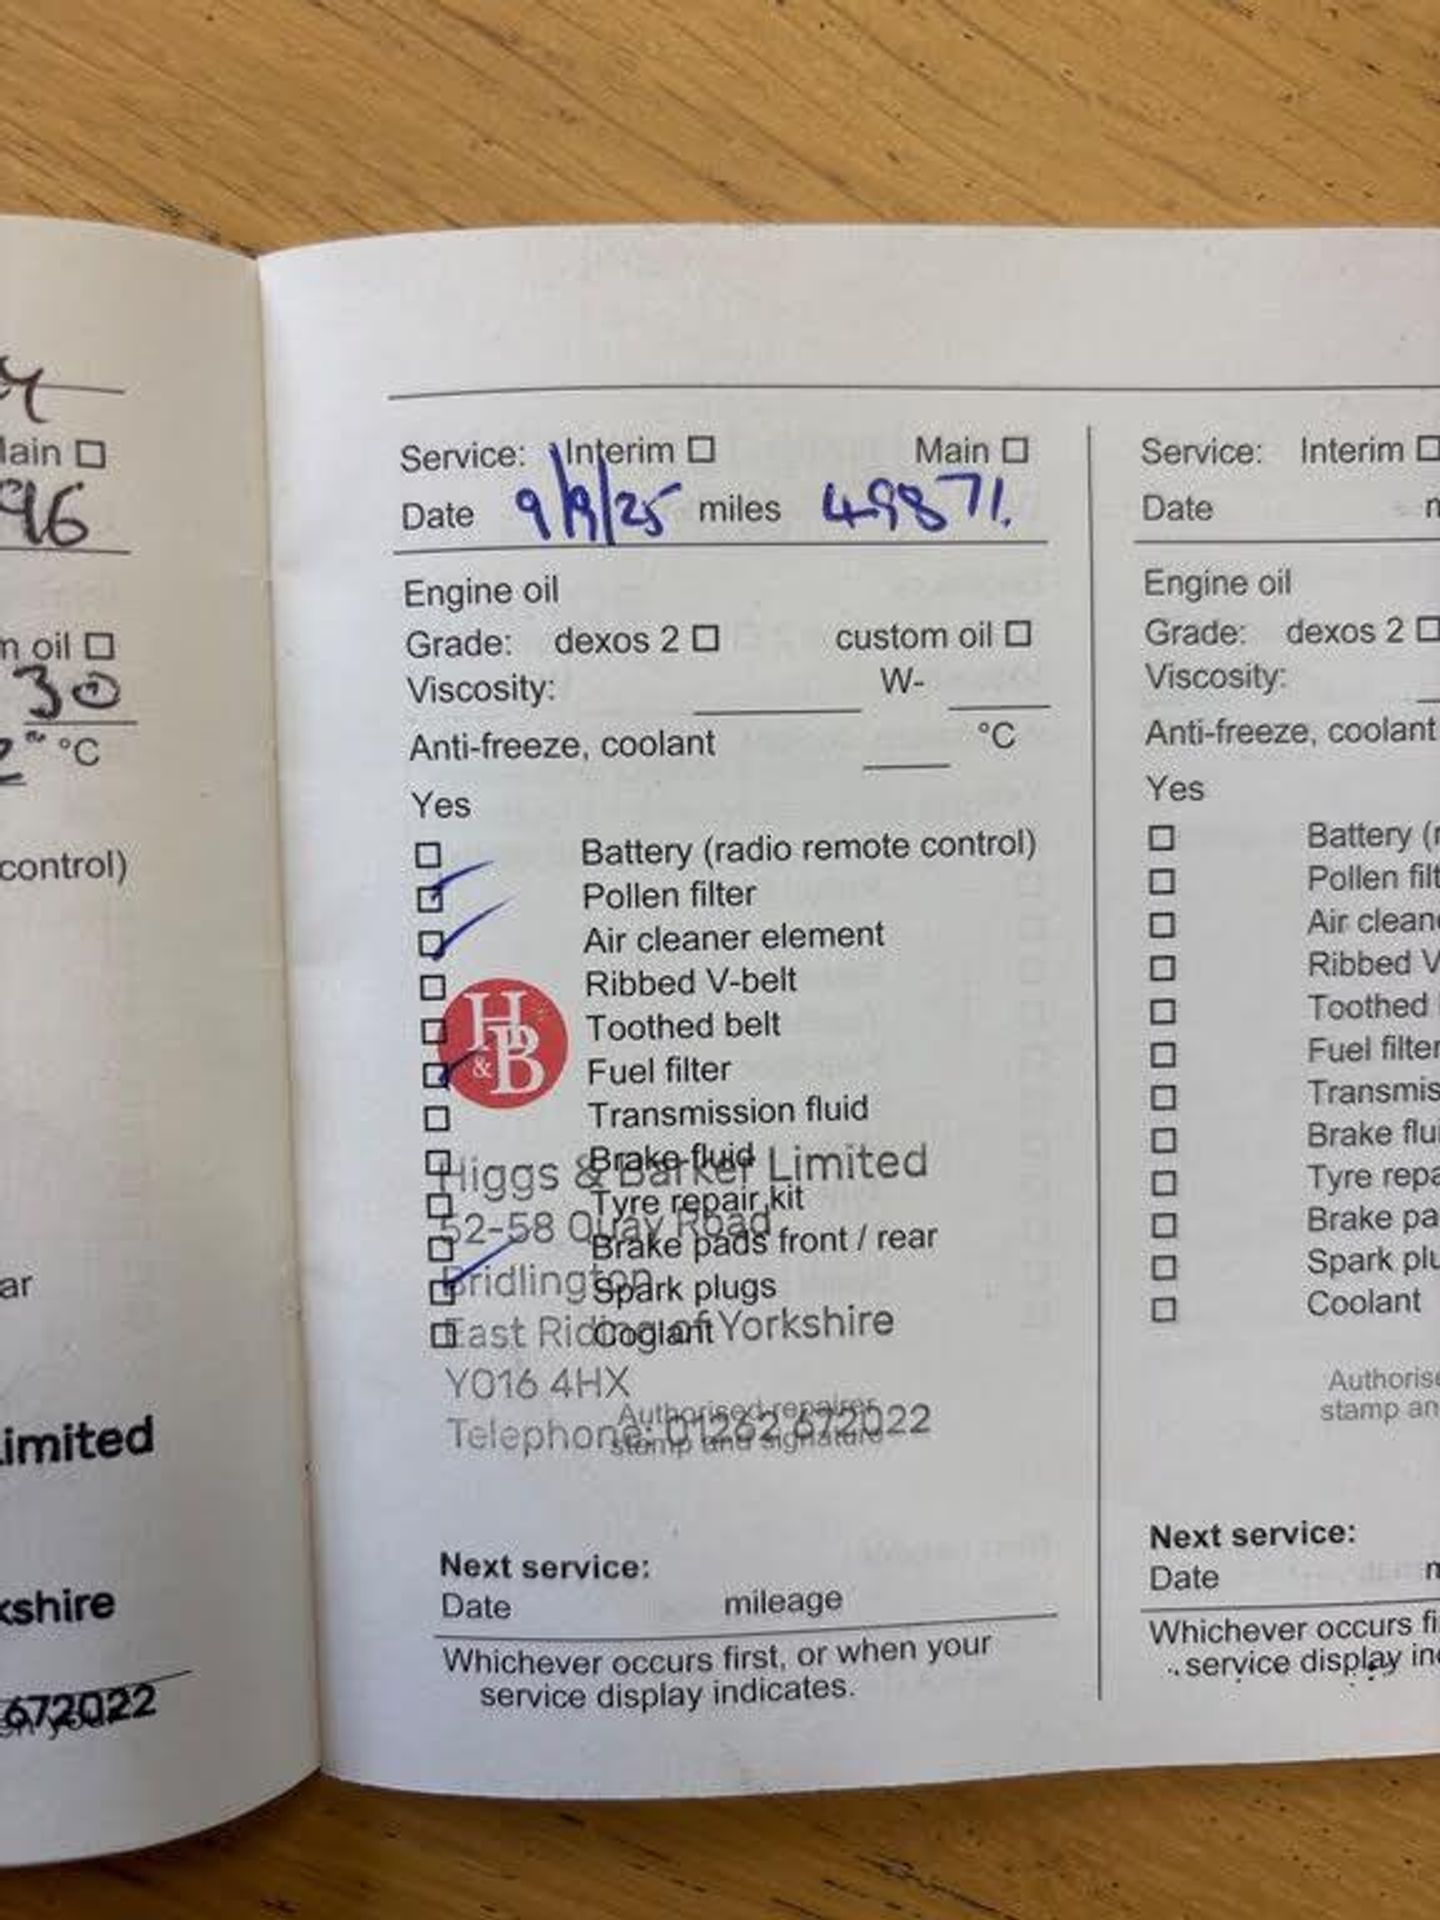 4
Main
96
m oil
30
2" °C
control)
ar
Limited
kshire
672022
Service: Interim Main
Date 9/9/25 miles 49871.
Engine oil
Grade: dexos 2 custom oil
Viscosity: W-
Anti-freeze, coolant °C
Yes
Battery (radio remote control)
Pollen filter
Air cleaner element
Ribbed V-belt
Toothed belt
Fuel filter
Transmission fluid
Brake fluid
Tyre repair kit
Brake pads front / rear
Spark plugs
Coolant
H&B
Higgs & Barker Limited
52-58 Quay Road
Bridlington
East Riding of Yorkshire
YO16 4HX
Telephone: 01262 672022
Authorised repairer
stamp and signature
Next service:
Date mileage
Whichever occurs first, or when your
service display indicates.
Service: Interim
Date m
Engine oil
Grade: dexos 2
Viscosity:
Anti-freeze, coolant
Yes
Battery (r
Pollen filt
Air cleane
Ribbed V
Toothed
Fuel filter
Transmis
Brake flui
Tyre repa
Brake pa
Spark plu
Coolant
Authorise
stamp an
Next service:
Date m
Whichever occurs fi
service display in